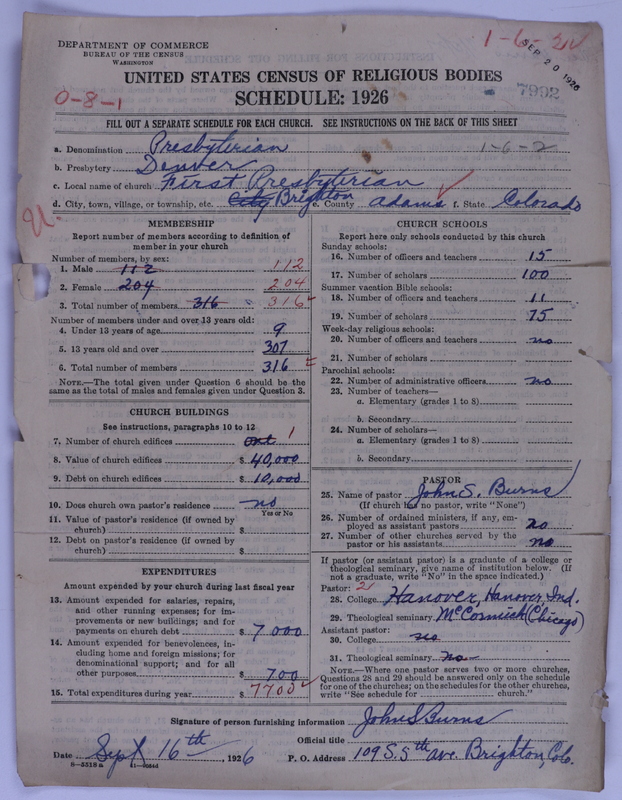 DEPARTMENT OF COMMERCE
BUREAU OF THE CENSUS
WASHINGTON
1-6-2
SEP 20 1926
7992
UNITED STATES CENSUS OF RELIGIOUS BODIES
SCHEDULE: 1926
0-8-1
FILL OUT A SEPARATE SCHEDULE FOR EACH CHURCH. SEE INSTRUCTIONS ON THE BACK OF THIS SHEET
a. Denomination Presbyterian 1-6-2
b. Presbytery Denver
c. Local name of church First Presbyterian
d. City, town, village, or township, etc. City Brighton e. County Adams f. State Colorado
MEMBERSHIP
Report number of members according to definition of
member in your church
Number of members, by sex:
1. Male 112 112
2. Female 204 204
3. Total number of members 316 316
Number of members under and over 13 years old:
4. Under 13 years of age 9
5. 13 years old and over 307
6. Total number of members 316
NOTE.—The total given under Question 6 should be the
same as the total of males and females given under Question 3.
CHURCH BUILDINGS
See instructions, paragraphs 10 to 12
7. Number of church edifices one 1
8. Value of church edifices $ 40,000
9. Debt on church edifices $ 10,000
10. Does church own pastor's residence no
Yes or No
11. Value of pastor's residence (if owned by
church) $
12. Debt on pastor's residence (if owned by
church) $
EXPENDITURES
Amount expended by your church during last fiscal year
13. Amount expended for salaries, repairs,
and other running expenses; for im-
provements or new buildings; and for
payments on church debt $ 7000
14. Amount expended for benevolences, in-
cluding home and foreign missions; for
denominational support; and for all
other purposes $ 700
15. Total expenditures during year $ 7700
CHURCH SCHOOLS
Report here only schools conducted by this church
Sunday schools:
16. Number of officers and teachers 15
17. Number of scholars 100
Summer vacation Bible schools:
18. Number of officers and teachers 11
19. Number of scholars 75
Week-day religious schools:
20. Number of officers and teachers no
21. Number of scholars
Parochial schools:
22. Number of administrative officers no
23. Number of teachers—
a. Elementary (grades 1 to 8)
b. Secondary
24. Number of scholars—
a. Elementary (grades 1 to 8)
b. Secondary
PASTOR
25. Name of pastor John S. Burns
(If church has no pastor, write "None")
26. Number of ordained ministers, if any, em-
ployed as assistant pastors no
27. Number of other churches served by the
pastor or his assistants no
If pastor (or assistant pastor) is a graduate of a college or
theological seminary, give name of institution below. (If
not a graduate, write "No" in the space indicated.)
Pastor: 2
28. College Hanover, Hanover, Ind.
29. Theological seminary McCormick (Chicago)
Assistant pastor:
30. College no
31. Theological seminary no
NOTE.—Where one pastor serves two or more churches,
Questions 28 and 29 should be answered only on the schedule
for one of the churches; on the schedules for the other churches,
write "See schedule for church."
Signature of person furnishing information John S Burns
Official title
Date Sept 16th, 1926 P. O. Address 109 S. 5th ave. Brighton, Colo.
8—5518a